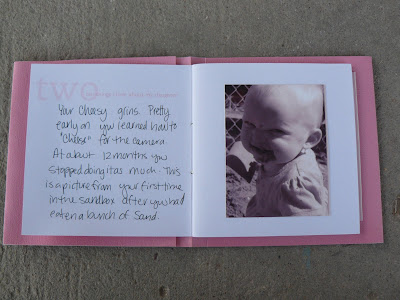 two
Your Cheesy grins. Pretty
early on you learned how to
"Cheese" for the camera
At about 12 months you
stopped doing it as much. This
is a picture from your first time
in the sandbox after you had
eaten a bunch of Sand.